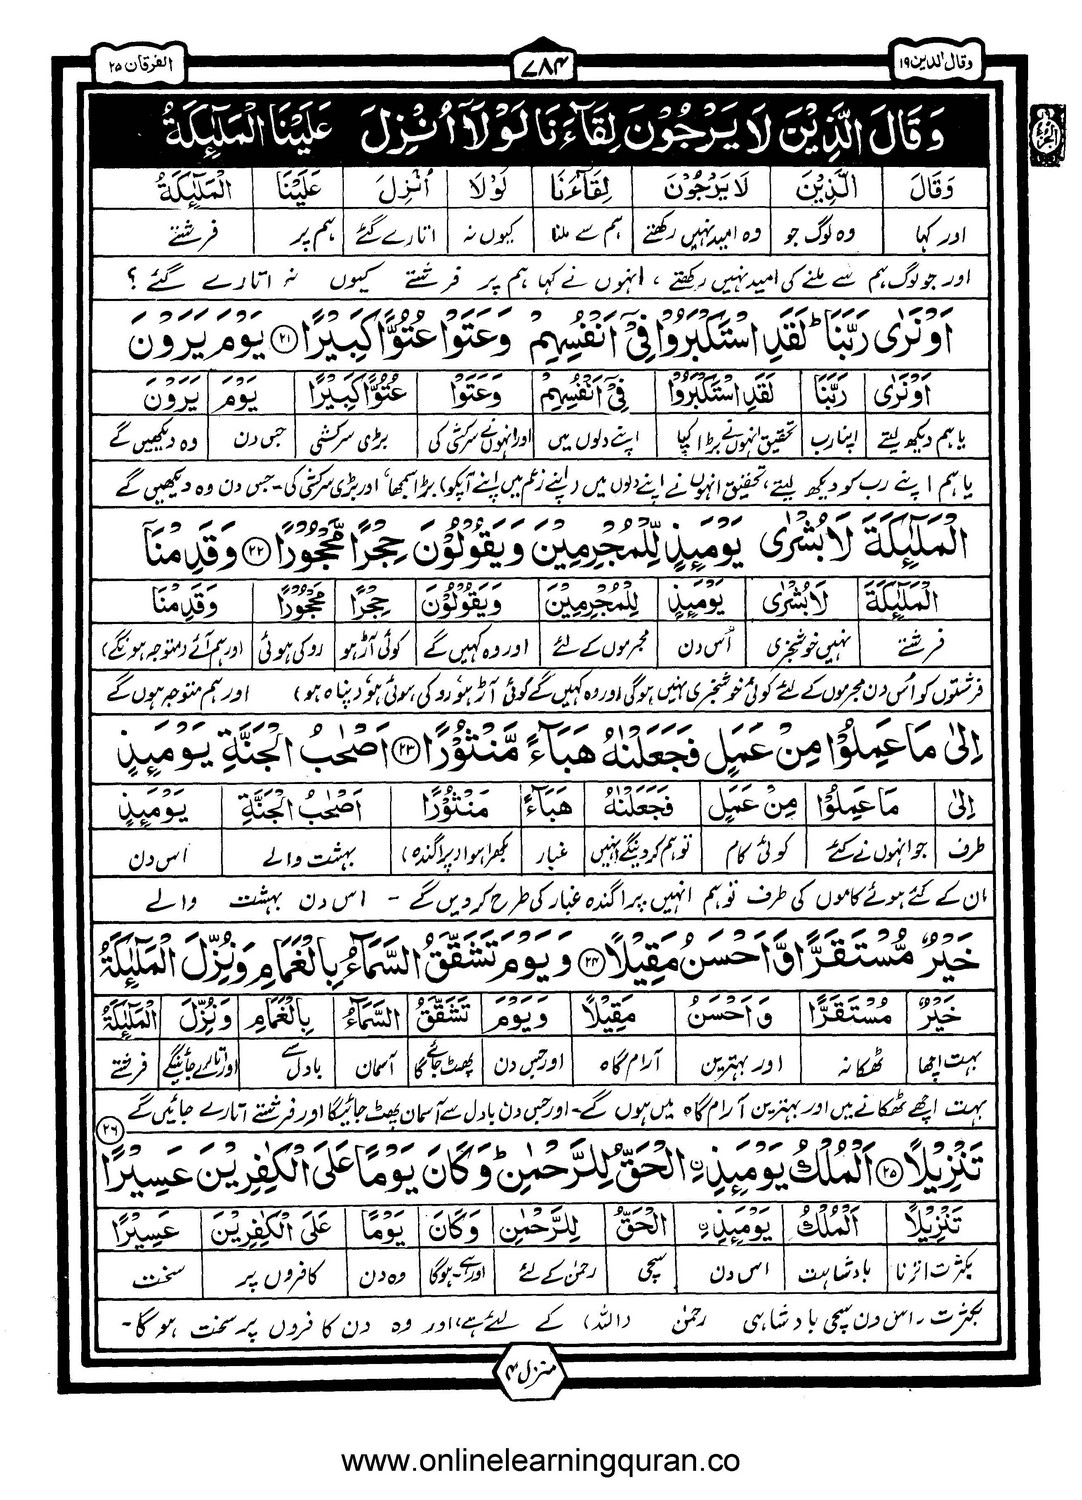 وقال الذین ۱۹
۷۸۴
الفرقان ۲۵
وَقَالَ الَّذِيْنَ لَا يَرْجُوْنَ لِقَآءَنَا لَوْلَآ اُنْزِلَ عَلَيْنَا الْمَلٰٓئِكَةُ
وَقَالَ الَّذِيْنَ لَا يَرْجُوْنَ لِقَآءَنَا لَوْلَا اُنْزِلَ عَلَيْنَا الْمَلٰٓئِكَةُ
اور کہا وہ لوگ جو وہ امید نہیں رکھتے ہم سے ملنا کیوں نہ اتارے گئے ہم پر فرشتے
اور جو لوگ ہم سے ملنے کی امید نہیں رکھتے ، انہوں نے کہا ہم پر فرشتے کیوں نہ اتارے گئے ؟
اَوْ نَرٰى رَبَّنَا ؕ لَقَدِ اسْتَكْبَرُوْا فِيْٓ اَنْفُسِهِمْ وَعَتَوْا عُتُوًّا كَبِيْرًا ۲۱ يَوْمَ يَرَوْنَ
اَوْ نَرٰى رَبَّنَا لَقَدِ اسْتَكْبَرُوْا فِيْٓ اَنْفُسِهِمْ وَعَتَوْا عُتُوًّا كَبِيْرًا يَوْمَ يَرَوْنَ
یا ہم دیکھ لیتے اپنا رب تحقیق انہوں نے بڑا کیا اپنے دلوں میں اور انہوں نے سرکشی کی بڑی سرکشی جس دن وہ دیکھیں گے
یا ہم اپنے رب کو دیکھ لیتے، تحقیق انہوں نے اپنے دلوں میں (اپنے زعم میں اپنے آپکو) بڑا سمجھا، اور بڑی سرکشی کی۔ جس دن وہ دیکھیں گے
الْمَلٰٓئِكَةَ لَا بُشْرٰى يَوْمَئِذٍ لِّلْمُجْرِمِيْنَ وَيَقُوْلُوْنَ حِجْرًا مَّحْجُوْرًا ۲۲ وَقَدِمْنَآ
الْمَلٰٓئِكَةَ لَا بُشْرٰى يَوْمَئِذٍ لِلْمُجْرِمِيْنَ وَيَقُوْلُوْنَ حِجْرًا مَّحْجُوْرًا وَقَدِمْنَا
فرشتے نہیں خوشخبری اُس دن مجرموں کے لئے اور وہ کہیں گے کوئی آڑ ہو روکی ہوئی اور ہم آئے (متوجہ ہونگے)
فرشتوں کو اُس دن مجرموں کے لئے کوئی خوشخبری نہیں ہوگی اور وہ کہیں گے کوئی آڑ ہو روکی ہوئی ہو (پناہ ہو) اور ہم متوجہ ہوں گے
اِلٰى مَا عَمِلُوْا مِنْ عَمَلٍ فَجَعَلْنٰهُ هَبَآءً مَّنْثُوْرًا ۲۳ اَصْحٰبُ الْجَنَّةِ يَوْمَئِذٍ
اِلٰى مَا عَمِلُوْا مِنْ عَمَلٍ فَجَعَلْنٰهُ هَبَآءً مَنْثُوْرًا اَصْحٰبُ الْجَنَّةِ يَوْمَئِذٍ
طرف جو انہوں نے کئے کوئی کام تو ہم کردینگے انہیں غبار بکھرا ہوا (پراگندہ) بہشت والے اس دن
ان کے کئے ہوئے کاموں کی طرف تو ہم انہیں پراگندہ غبار کی طرح کردیں گے - اس دن بہشت والے
خَيْرٌ مُّسْتَقَرًّا وَّاَحْسَنُ مَقِيْلًا ۲۴ وَيَوْمَ تَشَقَّقُ السَّمَآءُ بِالْغَمَامِ وَنُزِّلَ الْمَلٰٓئِكَةُ
خَيْرٌ مُسْتَقَرًّا وَاَحْسَنُ مَقِيْلًا وَيَوْمَ تَشَقَّقُ السَّمَآءُ بِالْغَمَامِ وَنُزِّلَ الْمَلٰٓئِكَةُ
بہت اچھا ٹھکانہ اور بہترین آرام گاہ اور جس دن پھٹ جائے گا آسمان بادل سے اور اتارے جائینگے فرشتے
بہت اچھے ٹھکانے میں اور بہترین آرام گاہ میں ہوں گے۔ اور جس دن بادل سے آسمان پھٹ جائیگا اور فرشتے اتارے جائیں گے
تَنْزِيْلًا ۲۵ اَلْمُلْكُ يَوْمَئِذِ ِۨالْحَقُّ لِلرَّحْمٰنِ ؕ وَكَانَ يَوْمًا عَلَى الْكٰفِرِيْنَ عَسِيْرًا ۲۶
تَنْزِيْلًا اَلْمُلْكُ يَوْمَئِذِ ِۨ الْحَقُّ لِلرَّحْمٰنِ وَكَانَ يَوْمًا عَلَى الْكٰفِرِيْنَ عَسِيْرًا
بکثرت اترنا بادشاہت اس دن سچی رحمٰن کے لئے اور ہے۔ ہوگا وہ دن کافروں پر سخت
بکثرت ، اس دن سچی بادشاہی رحمٰن (اللہ) کے لئے ہے، اور وہ دن کافروں پر سخت ہوگا۔
منزل ۴
www.onlinelearningquran.co